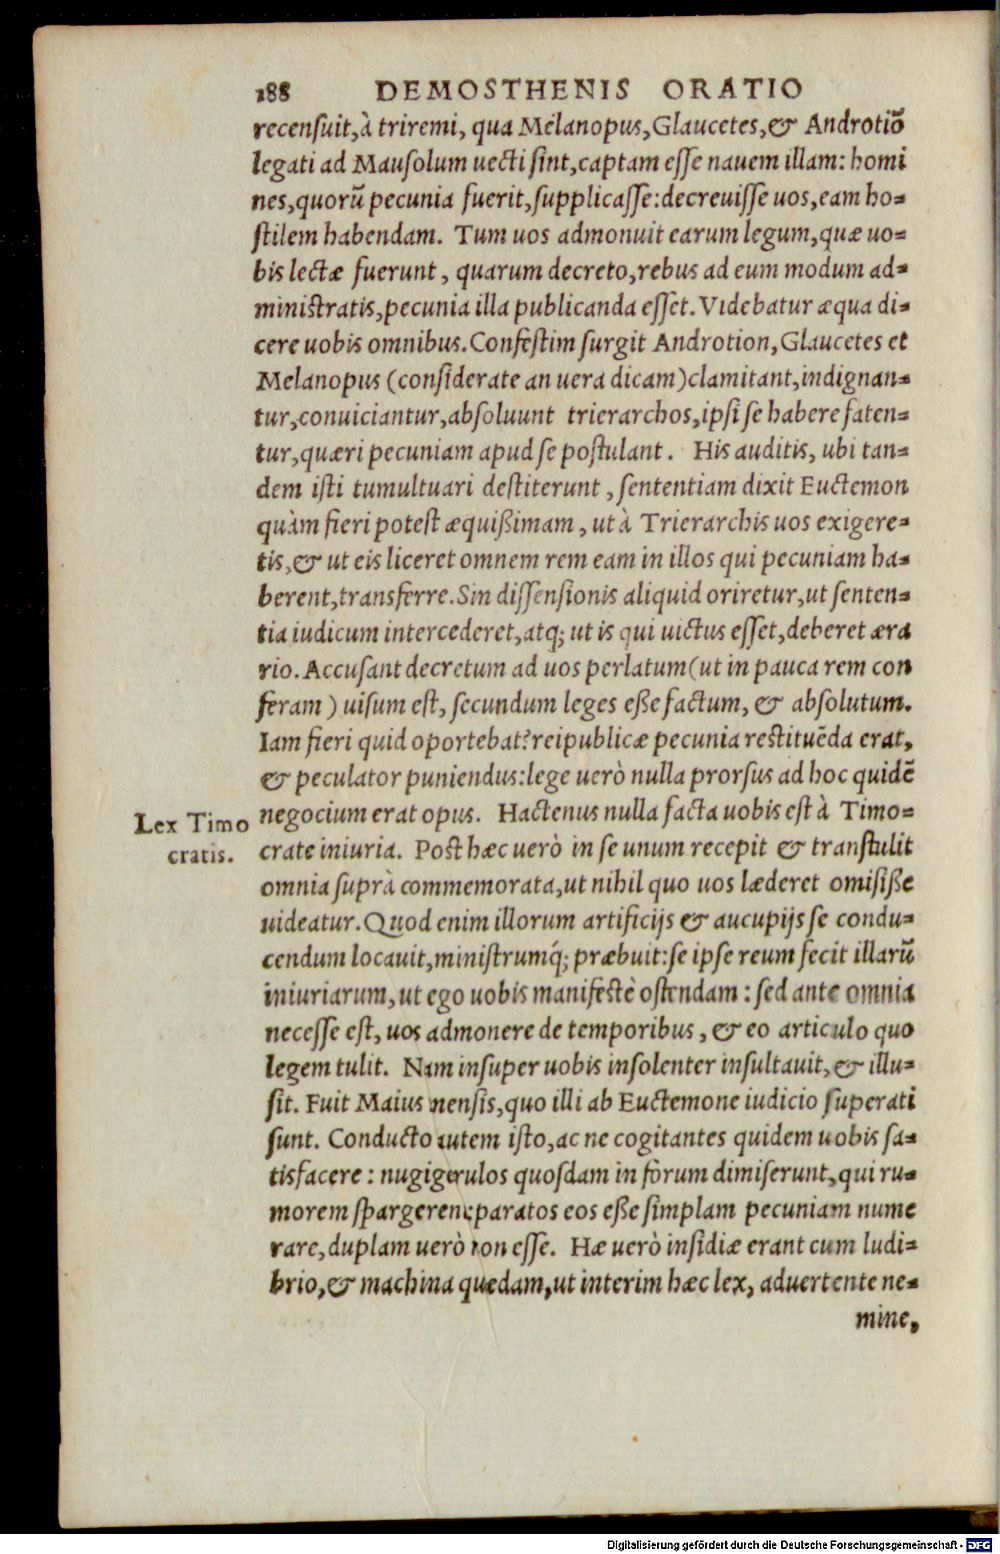 188 DEMOSTHENIS ORATIO
recensuit,à triremi, qua Melanopus,Glaucetes,& Androtiō
legati ad Mausolum uecti sint,captam esse nauem illam: homi
nes,quorū pecunia fuerit,supplicasse:decreuisse uos,eam ho=
stilem habendam. Tum uos admonuit earum legum,quæ uo=
bis lectæ fuerunt, quarum decreto,rebus ad eum modum ad=
ministratis,pecunia illa publicanda esset. Videbatur æqua di=
cere uobis omnibus. Confestim surgit Androtion,Glaucetes et
Melanopus (considerate an uera dicam)clamitant,indignan=
tur,conuiciantur,absoluunt trierarchos,ipsi se habere faten=
tur,quæri pecuniam apud se postulant. His auditis, ubi tan=
dem isti tumultuari destiterunt, sententiam dixit Euctemon
quàm fieri potest æquißimam, ut à Trierarchis uos exigere=
tis,& ut eis liceret omnem rem eam in illos qui pecuniam ha=
berent,transferre. Sin dissensionis aliquid oriretur,ut senten=
tia iudicum intercederet,atq; ut is qui uictus esset,deberet æra
rio. Accusant decretum ad uos perlatum(ut in pauca rem con
feram) uisum est, secundum leges eße factum, & absolutum.
Iam fieri quid oportebat?reipublicæ pecunia restituēda erat,
& peculator puniendus:lege uerò nulla prorsus ad hoc quidē
negocium erat opus. Hactenus nulla facta uobis est à Timo=
Lex Timo
cratis.
crate iniuria. Post hæc uerò in se unum recepit & transtulit
omnia suprà commemorata,ut nihil quo uos læderet omisiße
uideatur. Quod enim illorum artificijs & aucupijs se condu=
cendum locauit,ministrumq́; præbuit:se ipse reum fecit illarū
iniuriarum,ut ego uobis manifestè ostendam: sed ante omnia
necesse est, uos admonere de temporibus, & eo articulo quo
legem tulit. Nam insuper uobis insolenter insultauit,& illu=
sit. Fuit Maius mensis,quo illi ab Euctemone iudicio superati
sunt. Conducto autem isto,ac ne cogitantes quidem uobis sa=
tisfacere: nugigerulos quosdam in forum dimiserunt,qui ru=
morem spargerent,paratos eos eße simplam pecuniam nume
rare,duplam uerò non esse. Hæ uerò insidiæ erant cum ludi=
brio,& machina quædam,ut interim hæc lex, aduertente ne=
mine,
Digitalisierung gefördert durch die Deutsche Forschungsgemeinschaft - DFG